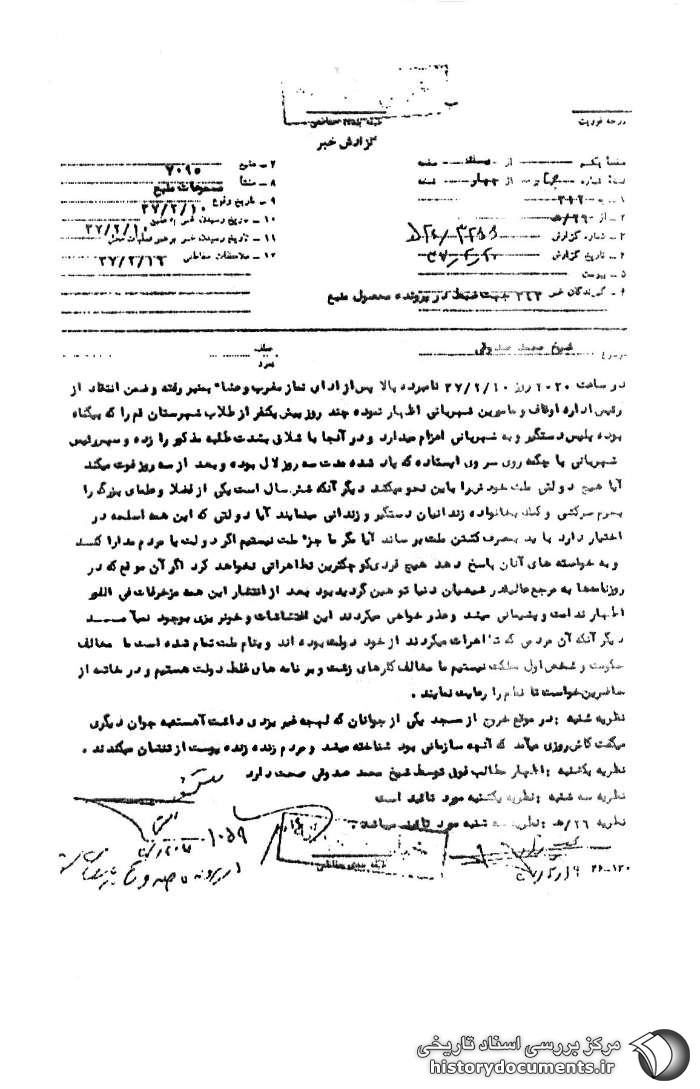 طبقه بندی حفاظتی
درجه فوریت
گزارش خبر
صفحه یکم از یک صفحه
نسخه شماره از چهار نسخه
۱ - به ۳۱۲
۲ - از ۲۶/ه
۳ - شماره گزارش
۴ - تاریخ گزارش
۵ - پیوست
۶ - گیرندگان خبر جهت ضبط در پرونده محصول منبع
۷ - منبع ۷۰۹۵
۸ - منشأ مسموعات منبع
۹ - تاریخ وقوع ۳۷/۲/۱۰
۱۰ - تاریخ رسیدن خبر به منبع
۱۱ - تاریخ رسیدن خبر برهبر عملیات محل
۱۲ - ملاحظات حفاظتی ۳۷/۲/۱۶
موضوع شیخ محمد صدوقی
در ساعت ۲۰۲۰ روز ۳۷/۲/۱۰ نامبرده بالا پس از ادای نماز مغرب و عشاء بمنبر رفته و ضمن انتقاد از
رئیس اداره اوقاف و مامورین شهربانی اظهار نموده چند روز پیش یکنفر از طلاب شهرستان قم را که بیگناه
بوده پلیس دستگیر و به شهربانی اعزام میدارد و در آنجا با شلاق بشدت طلبه مذکور را زده و سپس رئیس
شهربانی با چکمه روی سر وی ایستاده که یاد شده مدت سه روز لال بوده و بعد از سه روز فوت میکند
آیا هیچ دولتی ملت خودش را باین نحو میکشد دیگر آنکه شش سال است یکی از فضلا و علمای بزرگ را
بجرم سرکشی و کمک بخانواده زندانیان دستگیر و زندانی مینمایند آیا دولتی که این همه اسلحه در
اختیار دارد باید بمصرف کشتن ملت برساند آیا مگر ما جزء ملت نیستیم اگر دولت با مردم مدارا کند
و به خواسته های آنان پاسخ دهد هیچ فردی کوچکترین تظاهراتی نخواهد کرد اگر آن موقع که در
روزنامه‌ها به مرجع عالیقدر شیعیان دنیا توهین گردید بود بعد از انتشار این همه مزخرفات فی الفور
اظهار ندامت و پشیمانی میشد و عذر خواهی میکردند این اغتشاشات و خونریزی بوجود نمیآمد
دیگر آنکه آن مردمی که تظاهرات میکردند از خود دولت بوده اند و بنام ملت تمام شده است ما مخالف
حکومت و شخص اول مملکت نیستیم ما مخالف کارهای زشت و برنامه های غلط دولت هستیم و در خاتمه از
حاضرین خواست تا نظم را رعایت نمایند .
نظریه شنبه : در موقع خروج از مسجد یکی از جوانان که لهجه غیر یزدی داشت آهسته به جوان دیگری
میگفت کاش روزی میآمد که آنچه سازمانی بود شناخته میشد و مردم زنده زنده پوست از تنشان میکندند .
نظریه یکشنبه : اظهار مطالب فوق توسط شیخ محمد صدوقی صحت دارد
نظریه سه شنبه : نظریه یکشنبه مورد تائید است
نظریه ۲۶/ه : نظریه سه شنبه مورد تائید میباشد .
طبقه بندی حفاظتی
۱۰۵۹
۲۶-۱۲۰
مرکز بررسی اسناد تاریخی
historydocuments.ir